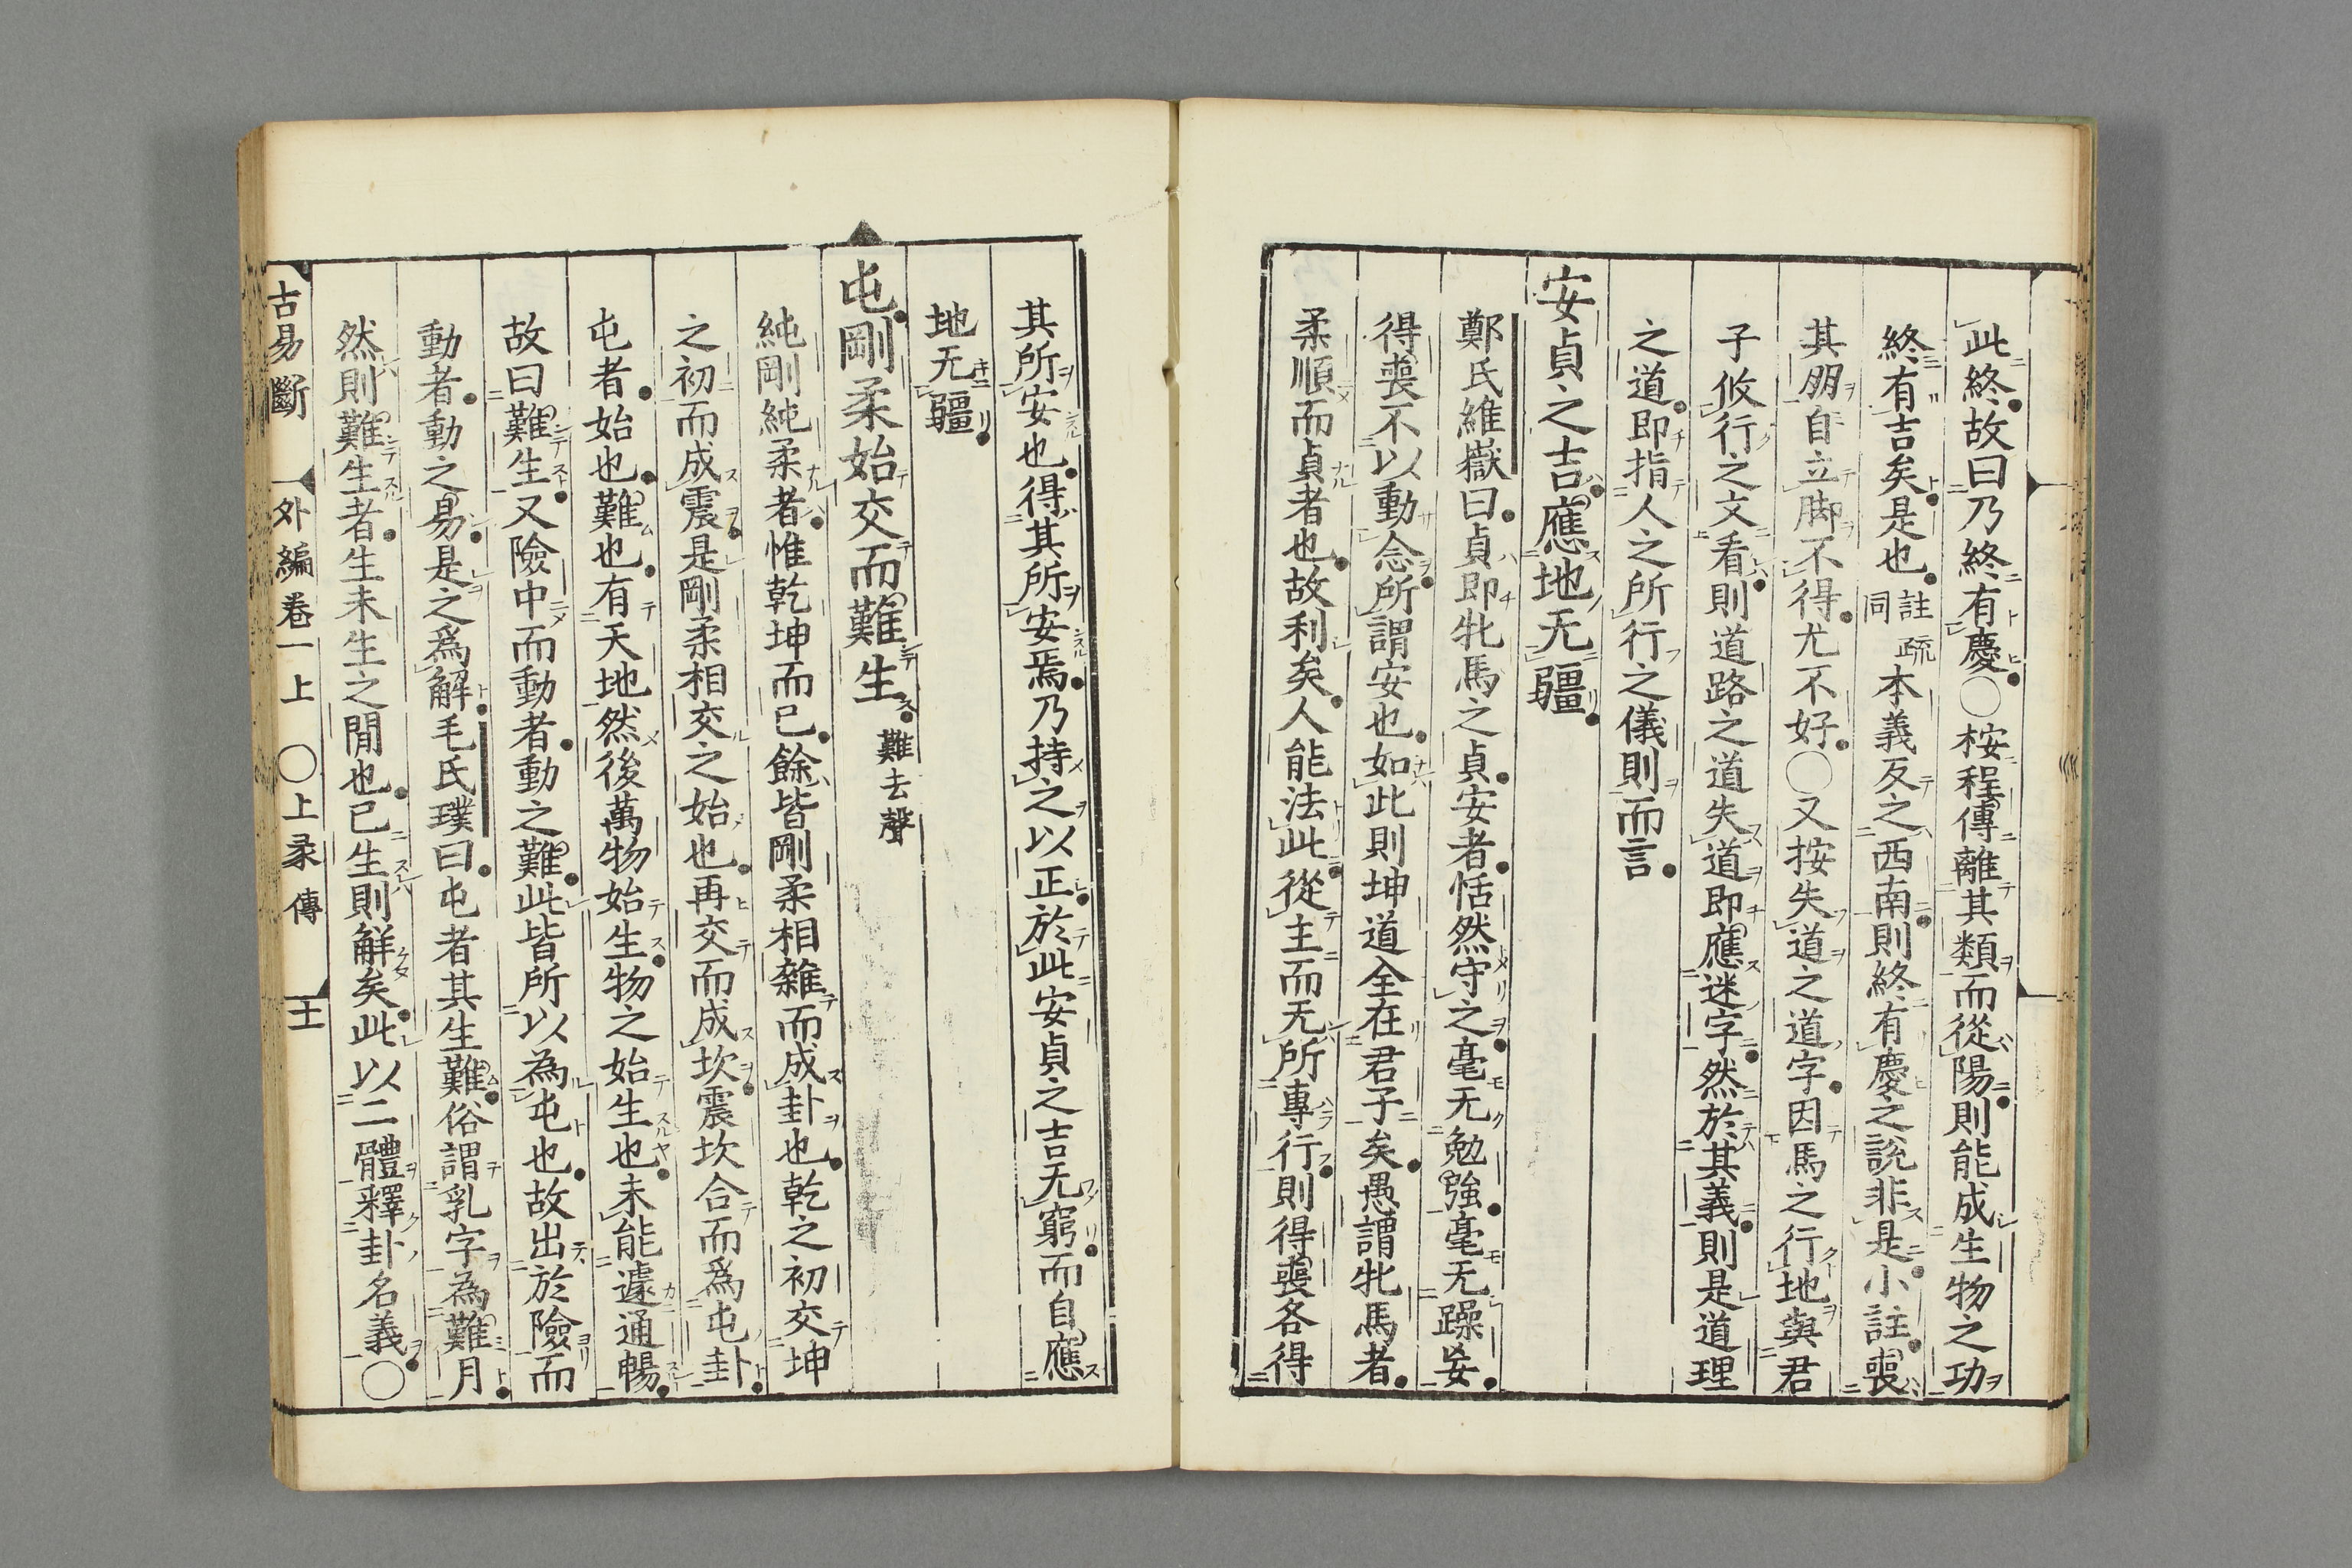 此終故曰乃終有慶○桉程傳離其類而從陽則能成生物之功
終有吉矣是也註疏同本義反之西南則終有慶之說非是小註喪
其朋自立脚不得尤不好○又按失道之道字因馬之行地與君
子攸行之文看則道路之道失道即應迷字然於其義則是道理
之道即指人之所行之儀則而言
安貞之吉應地无疆
鄭氏維嶽曰貞即牝馬之貞安者恬然守之毫无勉強毫无躁妄
得喪不以動念所謂安也如此則坤道全在君子矣愚謂牝馬者
柔順而貞者也故利矣人能法此從主而无所專行則得喪各得
其所安也得其所安焉乃持之以正於此安貞之吉无窮而自應
地无疆
屯剛柔始交而難生難去聲
純剛純柔者惟乾坤而已餘皆剛柔相雜而成卦也乾之初交坤
之初而成震是剛柔相交之始也再交而成坎震坎合而爲屯卦
屯者始也難也有天地然後萬物始生物之始生也未能遽通暢
故曰難生又險中而動者動之難此皆所以為屯也故出於險而
動者動之易是之爲解毛氏璞曰屯者其生難俗謂乳字為難月
然則難生者生未生之間也已生則解矣此以二體釋卦名義○
古易斷　外編卷一上　○上彖傳　十一